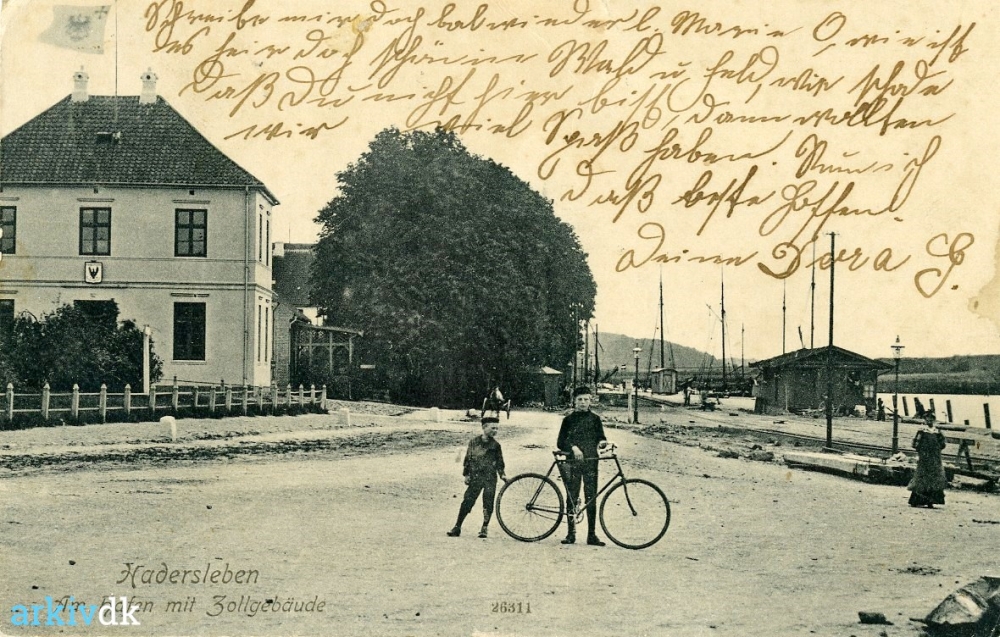 Schreibe mir doch bald wieder l. Marie O, wie ist
es hier doch schön Wald u. Feld, wie schade
Daß Du nicht hier bist, dann wollten
wir viel Spaß haben. Nun ich
daß beste hoffen.
Deine Dora
Hadersleben
Am Hafen mit Zollgebäude
26311
arkivdk